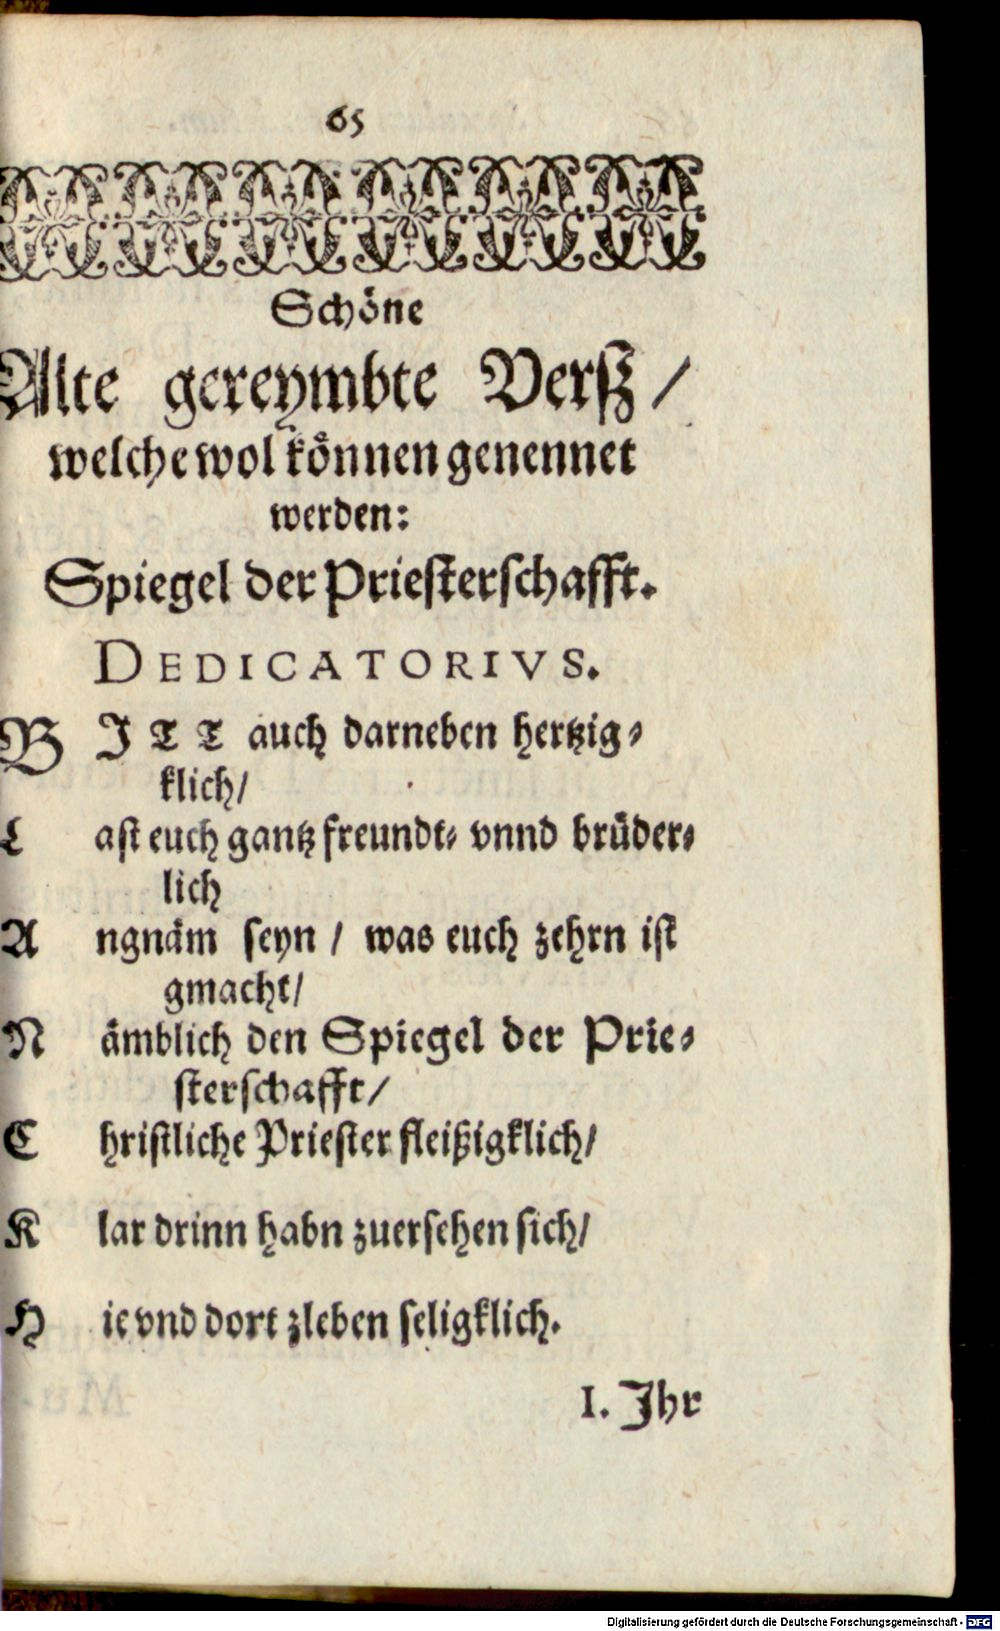 65
Schöne
Alte gereymbte Verß /
welche wol können genennet
werden:
Spiegel der Priesterschafft.
DEDICATORIVS.
BITT auch darneben hertzig-
klich/
L ast euch gantz freundt- vnnd brüder-
lich
A ngnäm seyn / was euch zehrn ist
gmacht/
N ämblich den Spiegel der Prie-
sterschafft/
C hristliche Priester fleißigklich/
K lar drinn habn zuersehen sich/
H ie vnd dort zleben seligklich.
I. Ihr
Digitalisierung gefördert durch die Deutsche Forschungsgemeinschaft - DFG